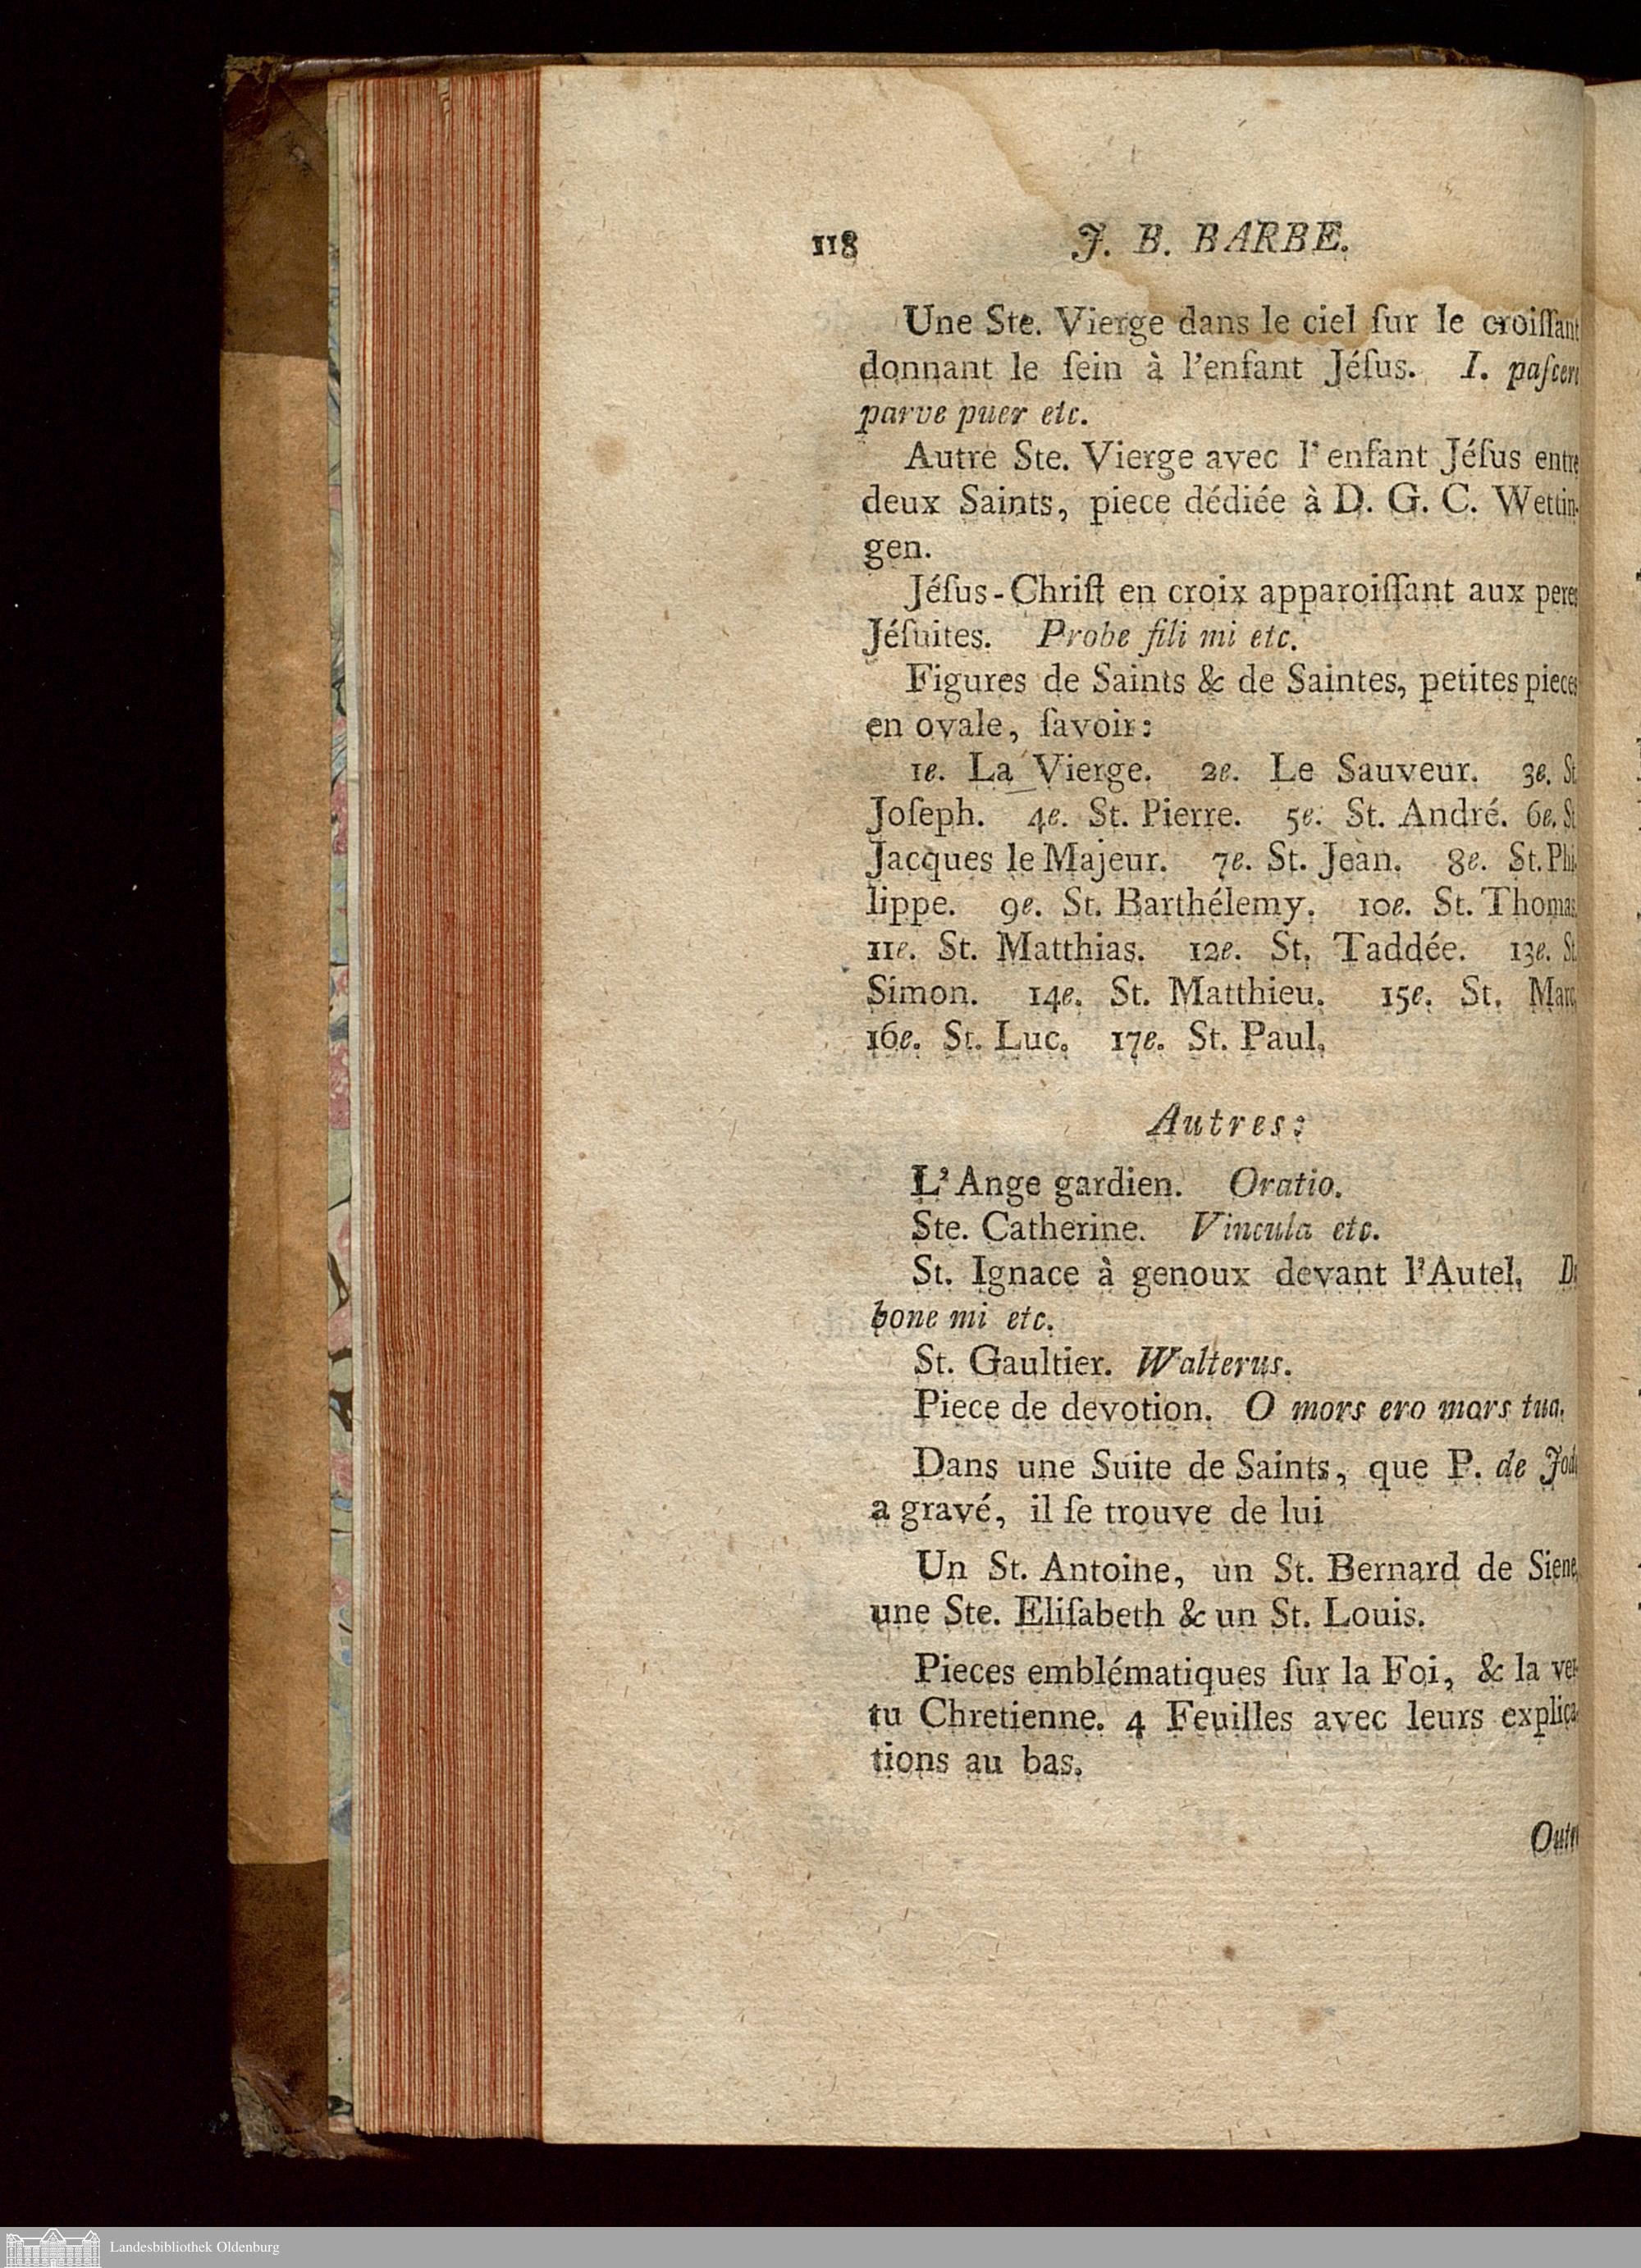 118 J. B. BARBE.
Une Ste. Vierge dans le ciel ſur le croiſſant
donnant le ſein à l'enfant Jéſus. I. paſcere
parve puer etc.
Autre Ste. Vierge avec l'enfant Jéſus entre
deux Saints, piece dédiée à D. G. C. Wettin-
gen.
Jéſus-Chriſt en croix apparoiſſant aux peres
Jéſuites. Probe fili mi etc.
Figures de Saints & de Saintes, petites pieces
en ovale, ſavoir:
1e. La Vierge. 2e. Le Sauveur. 3e. St.
Joſeph. 4e. St. Pierre. 5e. St. André. 6e. St.
Jacques le Majeur. 7e. St. Jean. 8e. St. Phi-
lippe. 9e. St. Barthélemy. 10e. St. Thomas.
11e. St. Matthias. 12e. St. Taddée. 13e. St.
Simon. 14e. St. Matthieu. 15e. St. Marc.
16e. St. Luc. 17e. St. Paul.
Autres:
L'Ange gardien. Oratio.
Ste. Catherine. Vincula etc.
St. Ignace à genoux devant l'Autel,
bone mi etc.
St. Gaultier. Walterus.
Piece de devotion. O mors ero mors tua.
Dans une Suite de Saints, que P. de Jode
a gravé, il ſe trouve de lui
Un St. Antoine, un St. Bernard de Siene,
une Ste. Eliſabeth & un St. Louis.
Pieces emblématiques ſur la Foi, & la ver-
tu Chretienne. 4 Feuilles avec leurs explica-
tions au bas.
Landesbibliothek Oldenburg